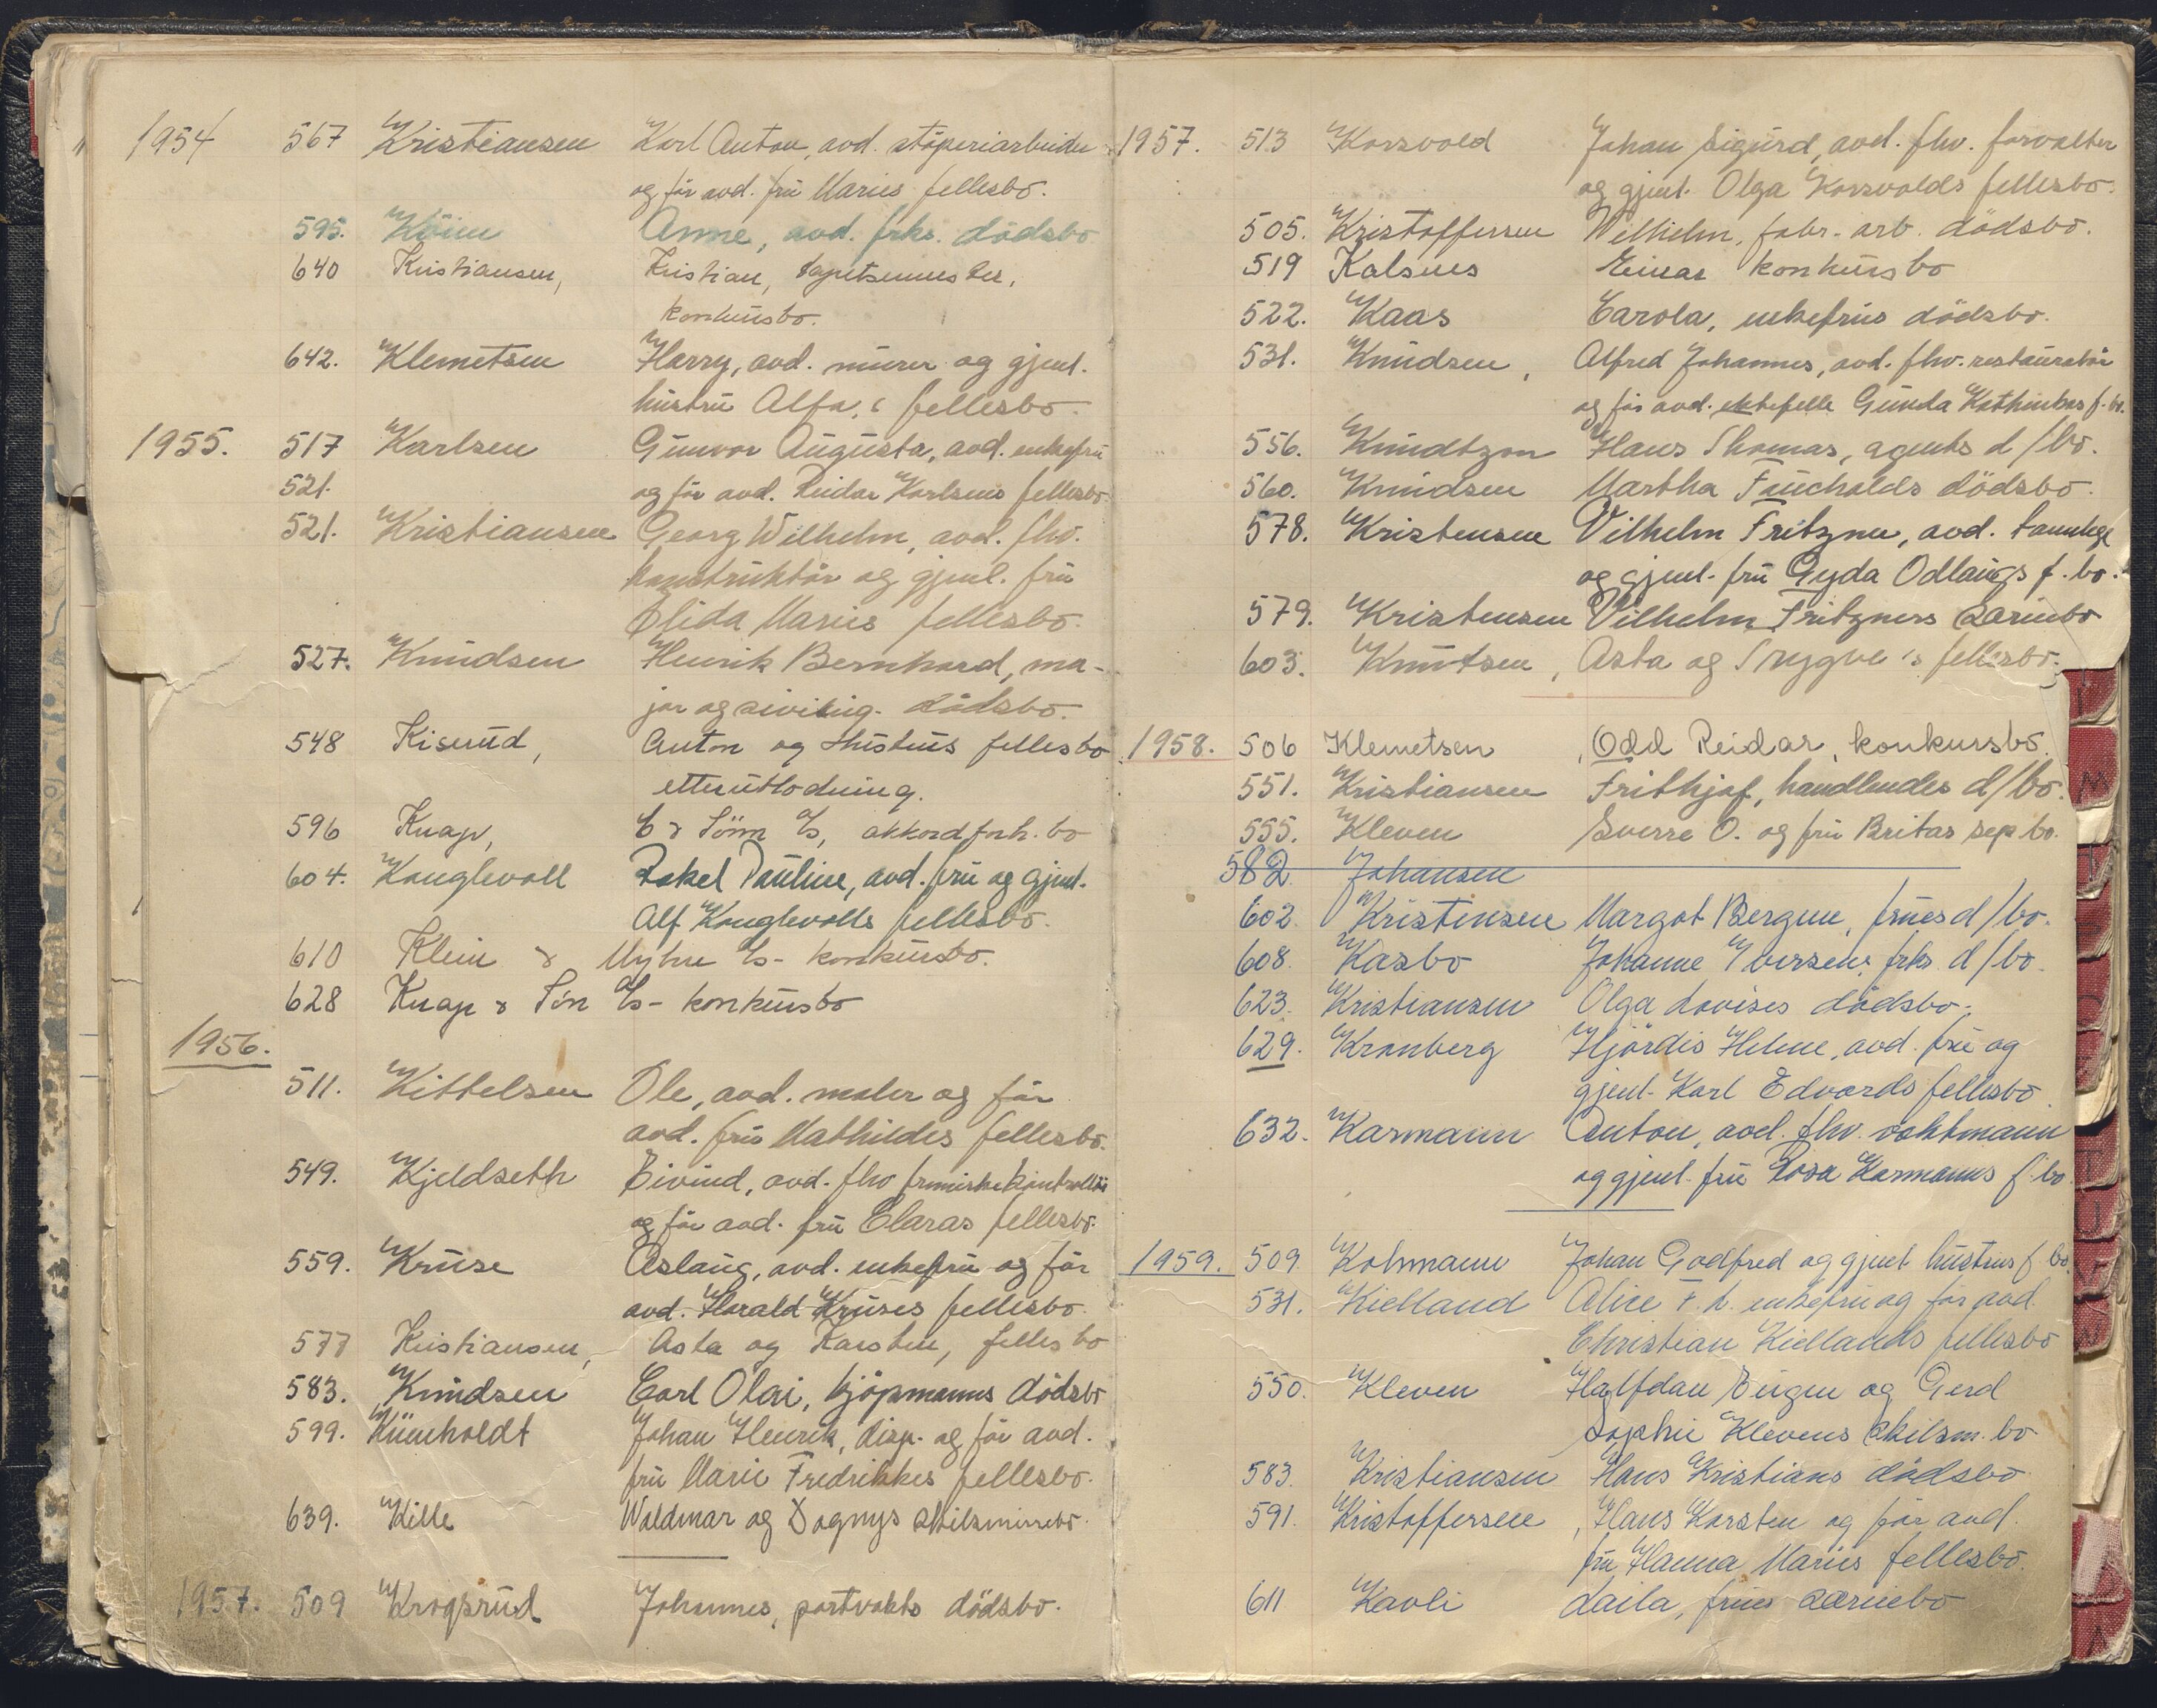 1954 567 Kristiansen Karl Anton, avd. støperiarbeider
og før avd. fru Maries fellesbo.
595. Köien Anne, avd. frks. dödsbo
640 Kristiansen, Kristian, tapetsermester,
konkursbo.
642. Klemetsen Harry, avd. murer og gjenl.
hustru Alfa's fellesbo.
1955. 517 Karlsen Gunvor Augusta, avd. enkefru
521. og før avd. Reidar Karlsens fellesbo.
521. Kristiansen Georg Wilhelm, avd. fhv.
konstruktør og gjenl. fru
Elida Maries fellesbo.
527. Knudsen Henrik Bernhard, ma-
jor og siviling. dödsbo.
548 Kiserud, Anton og hustrus fellesbo
etterutlodning.
596 Knap, C & Sönn A/s, akkordforh. bo
604. Konglevoll Rakel Pauline, avd. fru og gjenl.
Alf Konglevolls fellesbo.
610 Klein & Myhre A/s - konkursbo.
628 Knap & Sön A/s - konkursbo
1956.
511. Kittelsen Ole, avd. maler og før
avd. fru Mathildes fellesbo.
549. Kjeldseth Eivind, avd. fhv. kontrollör
og før avd. fru Claras fellesbo.
559. Kruse Aslaug, avd. enkefru og før
avd. Harald Kruses fellesbo.
577 Kristiansen, Asta og Karsten, felles bo
583. Knudsen Carl Olai, kjöpmanns dödsbo
599. Künholdt Johan Henrik, disp. og før avd.
fru Marie Fredrikkes fellesbo.
639. Kille Waldmar og Dagnys skilsmissebo.
1957. 509 Krogsrud Johannes, portvakts dödsbo.
1957. 513 Korsvold Johan Sigurd, avd. fhv. forvalter
og gjenl. Olga Korsvolds fellesbo.
505. Kristoffersen Wilhelm, fabr. arb. dödsbo.
519 Kalsnes Einar konkursbo
522. Kaas Carola, enkefrus dödsbo.
531. Knudsen, Alfred Johannes, avd. fhv. restauratör
og før avd. ektefelle Gunda Kathinkas f. bo.
556. Knudtzon Hans Thomas, agents d/bo.
560. Knudsen Martha Faucholds dödsbo.
578. Kristensen Vilhelm Fritzner, avd. tannlege
og gjenl. fru Gyda Odlaugs f. bo.
579. Kristensen Vilhelm Fritzners særiebo
603. Knutsen, Asta og Trygve's fellesbo.
1958. 506 Klemetsen, Odd Reidar, konkursbo.
551. Kristiansen Frithjof, handlendes d/bo.
555. Kleven Sverre O. og fru Britas sep bo.
582. Johansen
602. Kristensen Margot Bergum, frues d/bo.
608. Kasbo Johanne Iversens, frks d/bo.
623. Kristiansen Olga Lovises dödsbo.
629. Kronberg Hjördis Helene, avd. fru og
gjenl. Karl Edvards fellesbo.
632. Karmann Anton, avd. fhv. vaktmann
og gjenl. fru Rosa Karmanns f. bo.
1959. 509. Kohmann Johan Godfred og gjenl hustrus f. bo.
531. Kielland Alice F. L. enkefru og før avd.
Christian Kiellands fellesbo
550. Kleven Halfdan Eugen og Gerd
Sophie Klevens skilsm. bo
583. Kristiansen Hans Kristians dödsbo
591. Kristoffersen, Hans Karsten og før avd.
fru Hanna Maries fellesbo.
611 Kavli Laila, frues særiebo